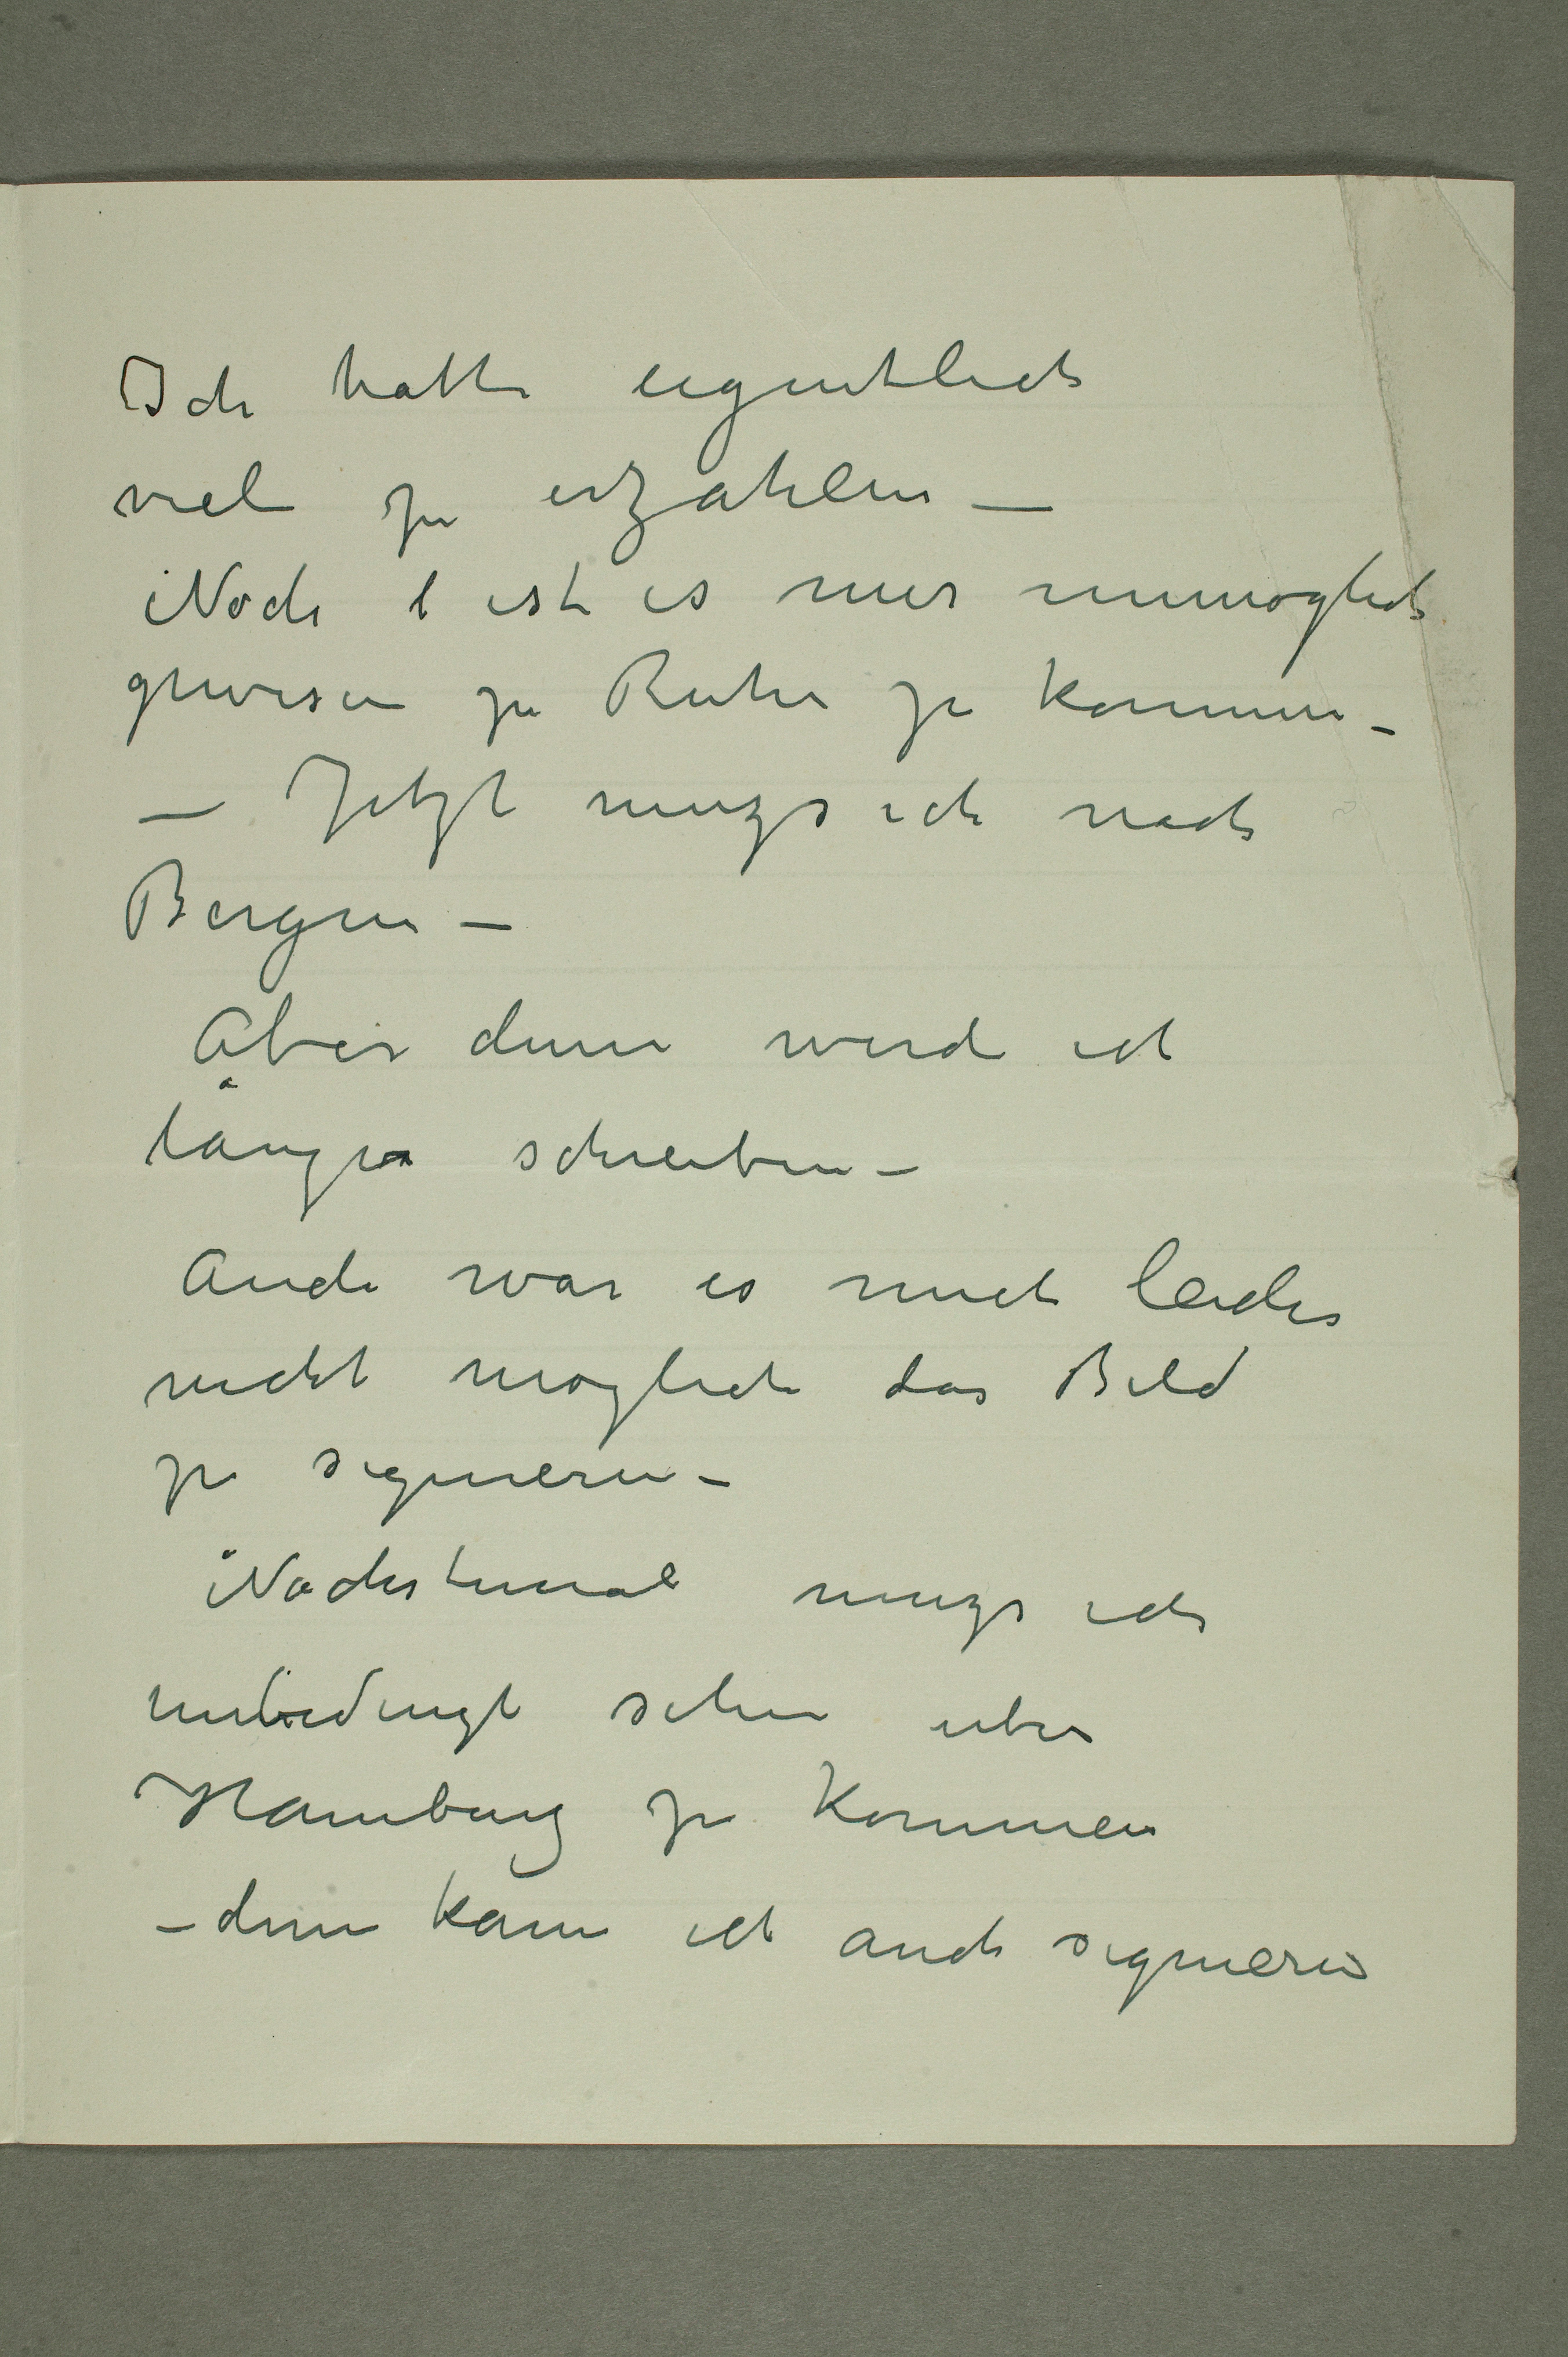 Ich hatte eigentlich
viel zu erzahlen —
Noch ist es mir unmöglich
gewesen zu Ruhe zu kommen –
— Jetzt muzs ich nach
Bergen —
Aber denn werde ich
länger schreiben –
Auch war es mich leider
nicht moglich das Bild
zu signieren –
Nachstemal muzs ich
unbedingt sehen uber
Hamburg zu kommen
– denn kann ich auch signieren